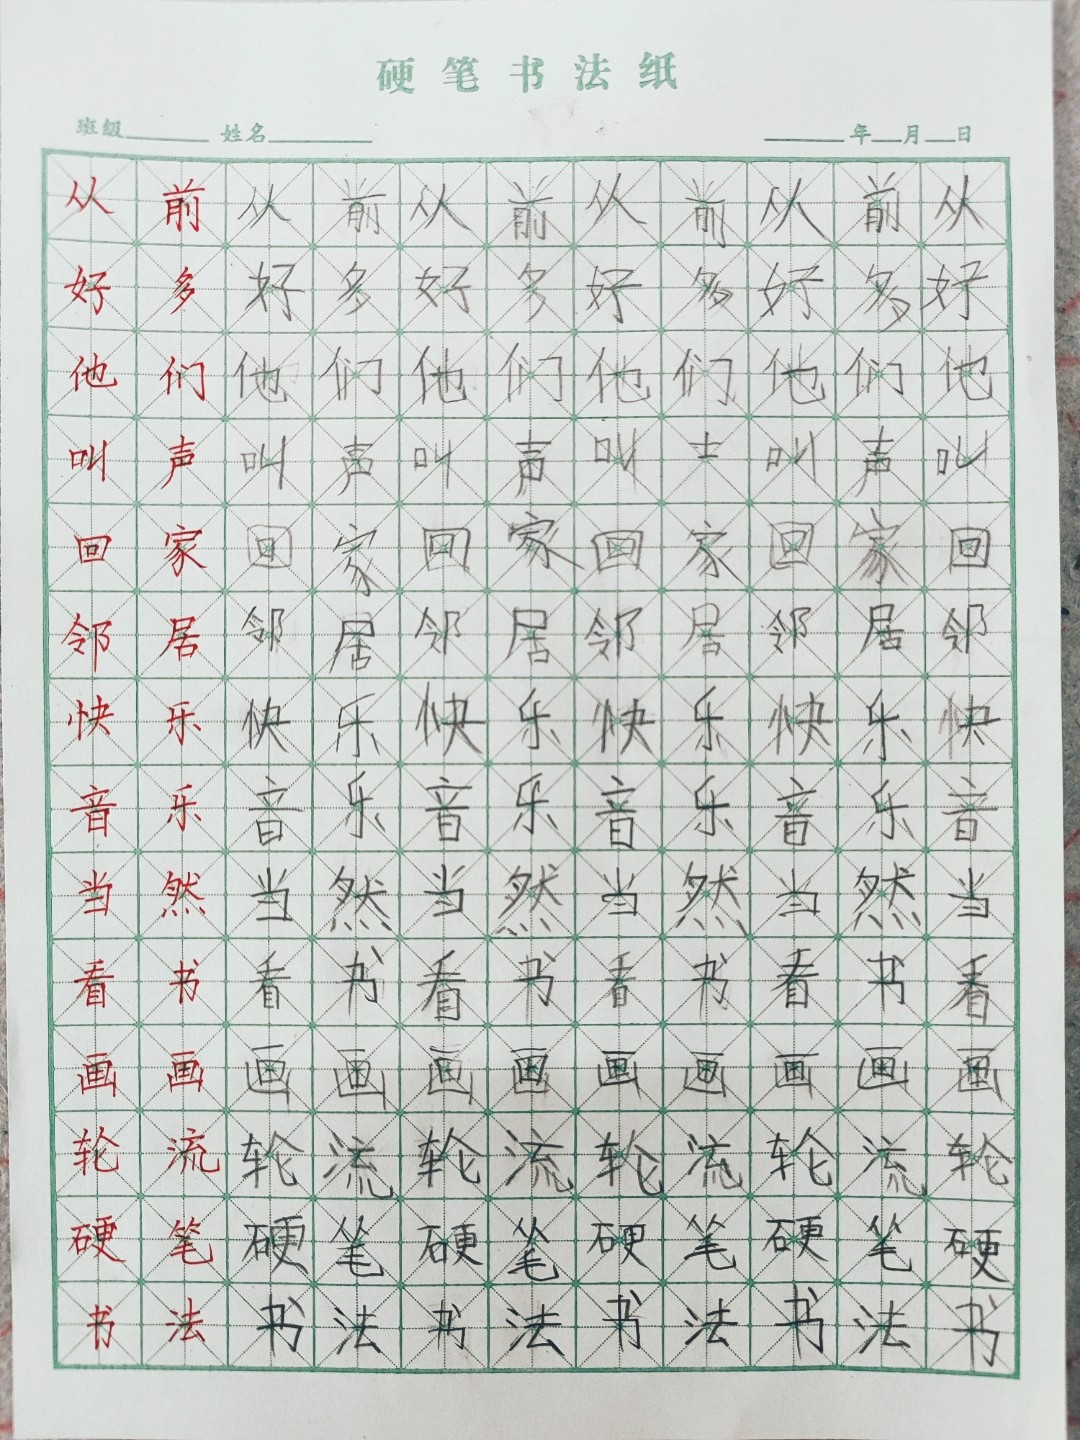 硬笔书法纸
班级 姓名 年 月 日
从前从前从前从前从前从
好多好多好多好多好多好
他们他们他们他们他们他
叫声叫声叫声叫士叫声叫
回家回家回家回家回家回
邻居邻居邻居邻居邻居邻
快乐快乐快乐快乐快乐快
音乐音乐音乐音乐音乐音
当然当然当然当然当然当
看书看书看书看书看书看
画画画画画画画画画画画
轮流轮流轮流轮流轮流轮
硬笔硬笔硬笔硬笔硬笔硬
书法书法书法书法书法书